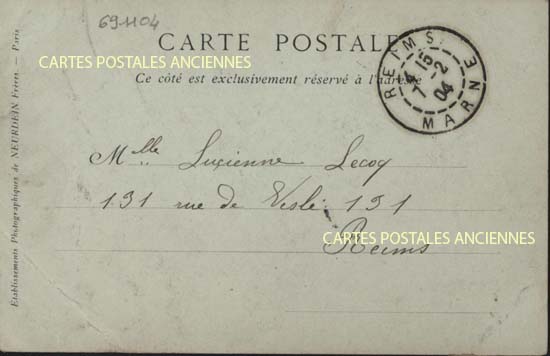 69-1104
CARTE POSTALE
CARTES POSTALES ANCIENNES
Ce côté est exclusivement réservé à l'adresse
REIMS
7 15
-2
04
MARNE
Mlle Lucienne Lecoq
131 rue de Vesle 131
CARTES POSTALES ANCIENNES
Reims
Etablissements Photographiques de NEURDEIN Frères. — Paris